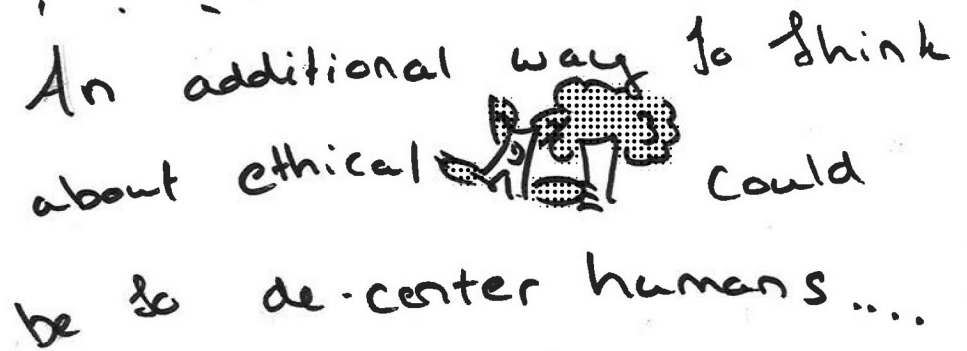 An additional way to think
about ethical could
be to de-center humans....